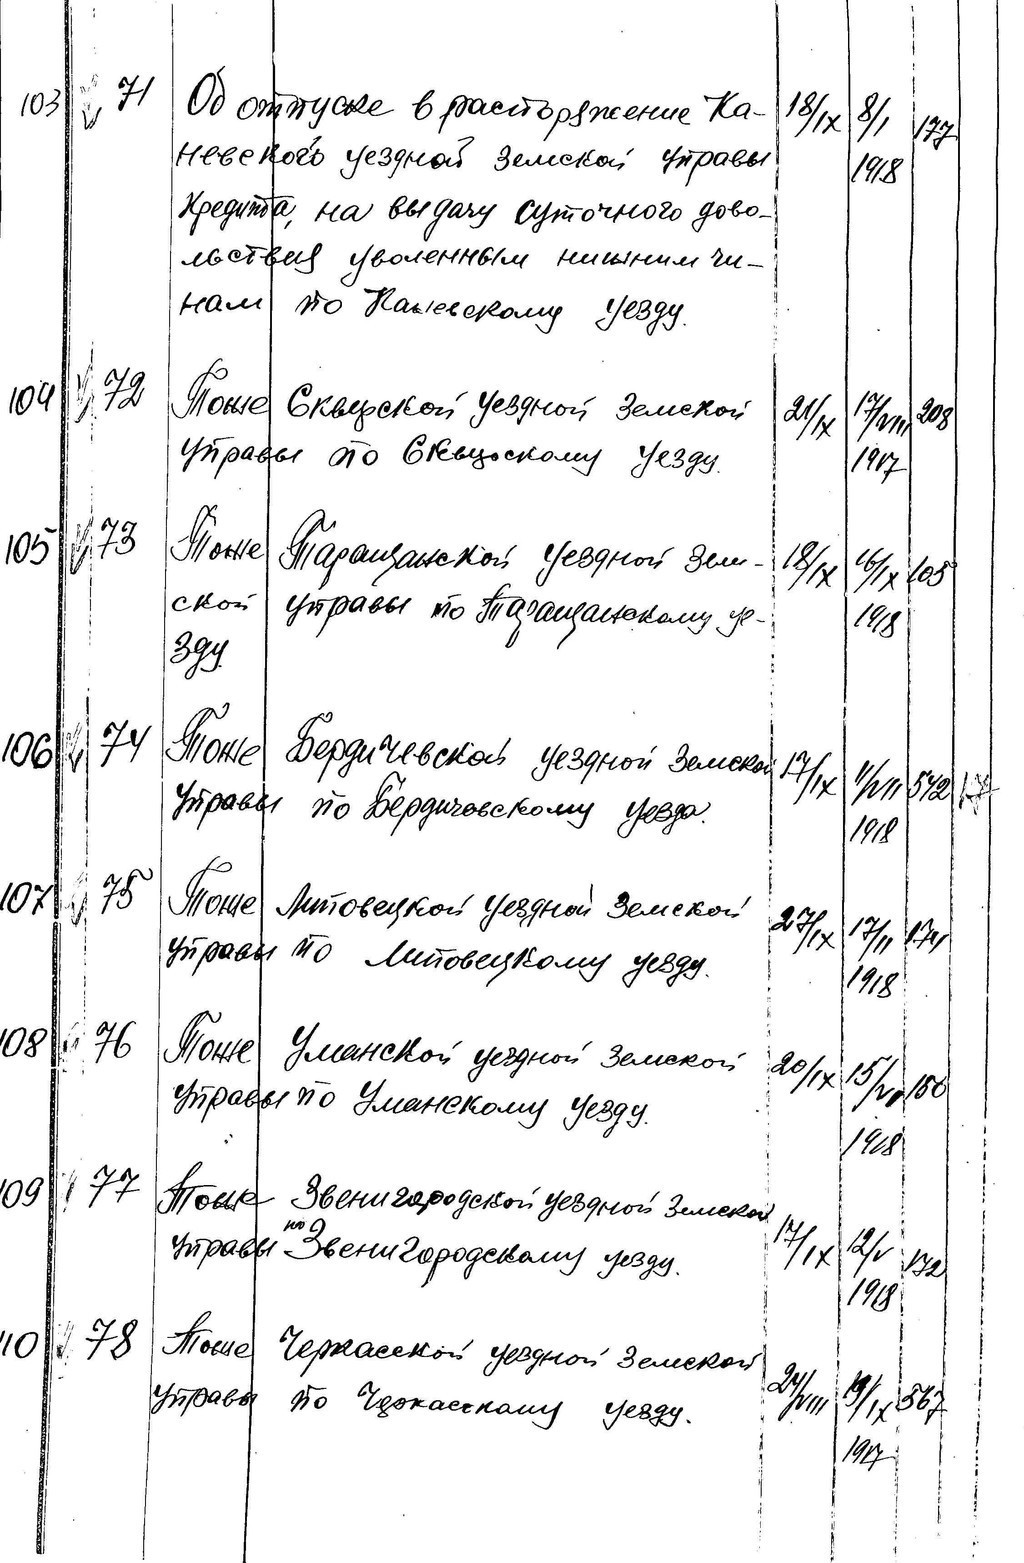 103 71 Об отпуске в распоряжение Ка- 18/IX 8/I 177
невского уездной земской управы 1918
Кредита, на выдачу суточного дово-
льствия уволенным нижним чи-
нам по Каневскому уезду.
104 72 Тоже Сквирской уездной земской 21/IX 17/VIII 208
управы по Сквирскому уезду. 1917
105 73 Тоже Таращанской уездной зем- 18/IX 16/IX 105
ской управы по Таращанскому уе- 1918
зду.
106 74 Тоже Бердичевской уездной земской 17/IX 11/VII 542
управы по Бердичевскому уезда. 1918
107 75 Тоже Липовецкой уездной земской 27/IX 17/II 174
управы по Липовецкому уезду. 1918
108 76 Тоже Уманской уездной земской 20/IX 150
управы по Уманскому уезду. 1918
109 77 Тоже Звенигородской уездной земской
управы по Звенигородскому уезду. 17/IX 12/V 172
1918
110 78 Тоже Черкасской уездной земской
управы по Черкасскому уезду. 24/VIII 19/IX 567
1917